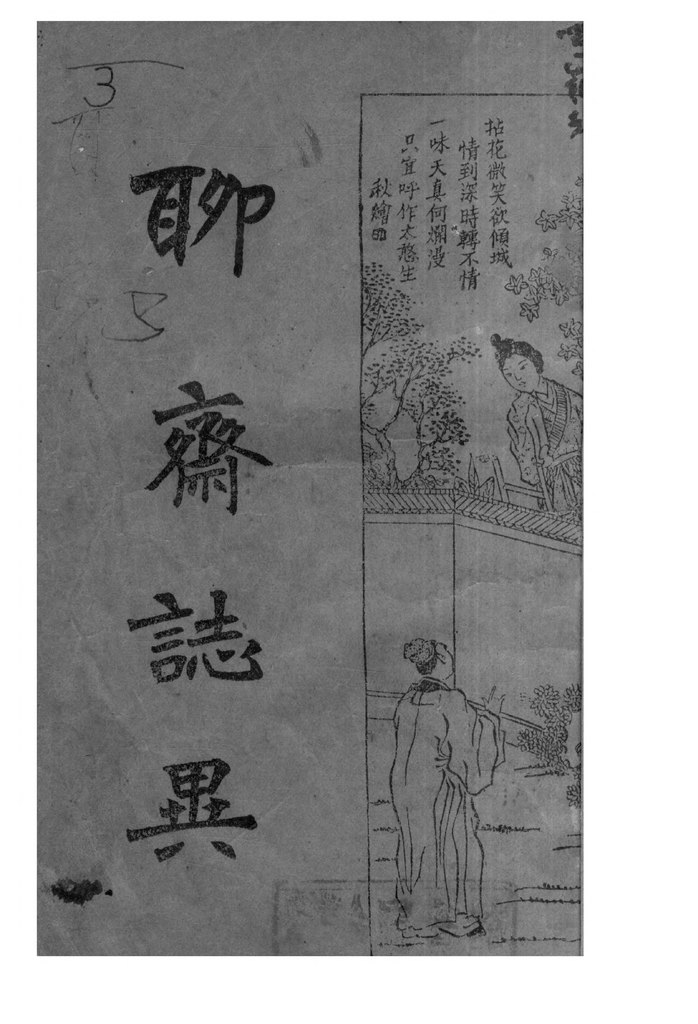 拈花微笑欲傾城
情到深時轉不情
一味天真何爛漫
只宜呼作太憨生
秋繪
聊齋誌異
3